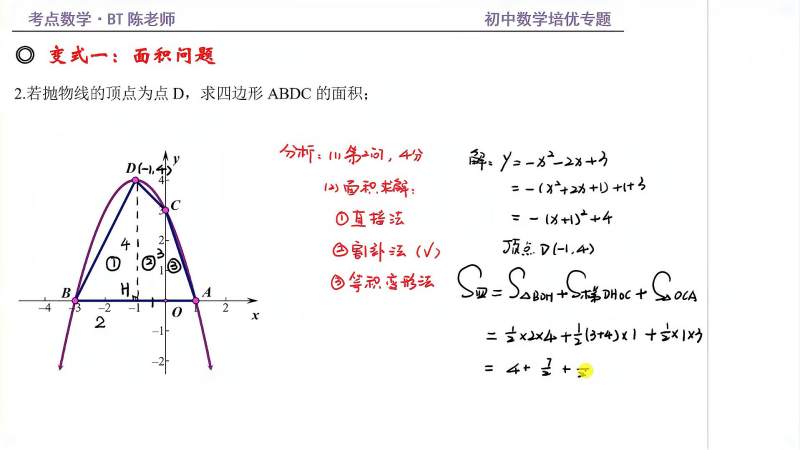 考点数学·BT 陈老师
初中数学培优专题
◎ 变式一：面积问题
2.若抛物线的顶点为点 D，求四边形 ABDC 的面积；
分析：(1) 第2问，4分
(2) 面积求解：
①直接法
②割补法 (√)
③等积变形法
解：y=-x²-2x+3
=-(x²+2x+1)+1+3
=-(x+1)²+4
顶点 D(-1,4)
S四=S△BDH+S梯DHOC+S△OCA
=½×2×4+½(3+4)×1+½×1×3
=4+7/2+
D(-1,4)
y
4
C
3
2
4
①
②
3
③
1
B
H
A
-4
-3
-2
-1
1
O
1
2
x
2
-1
-2